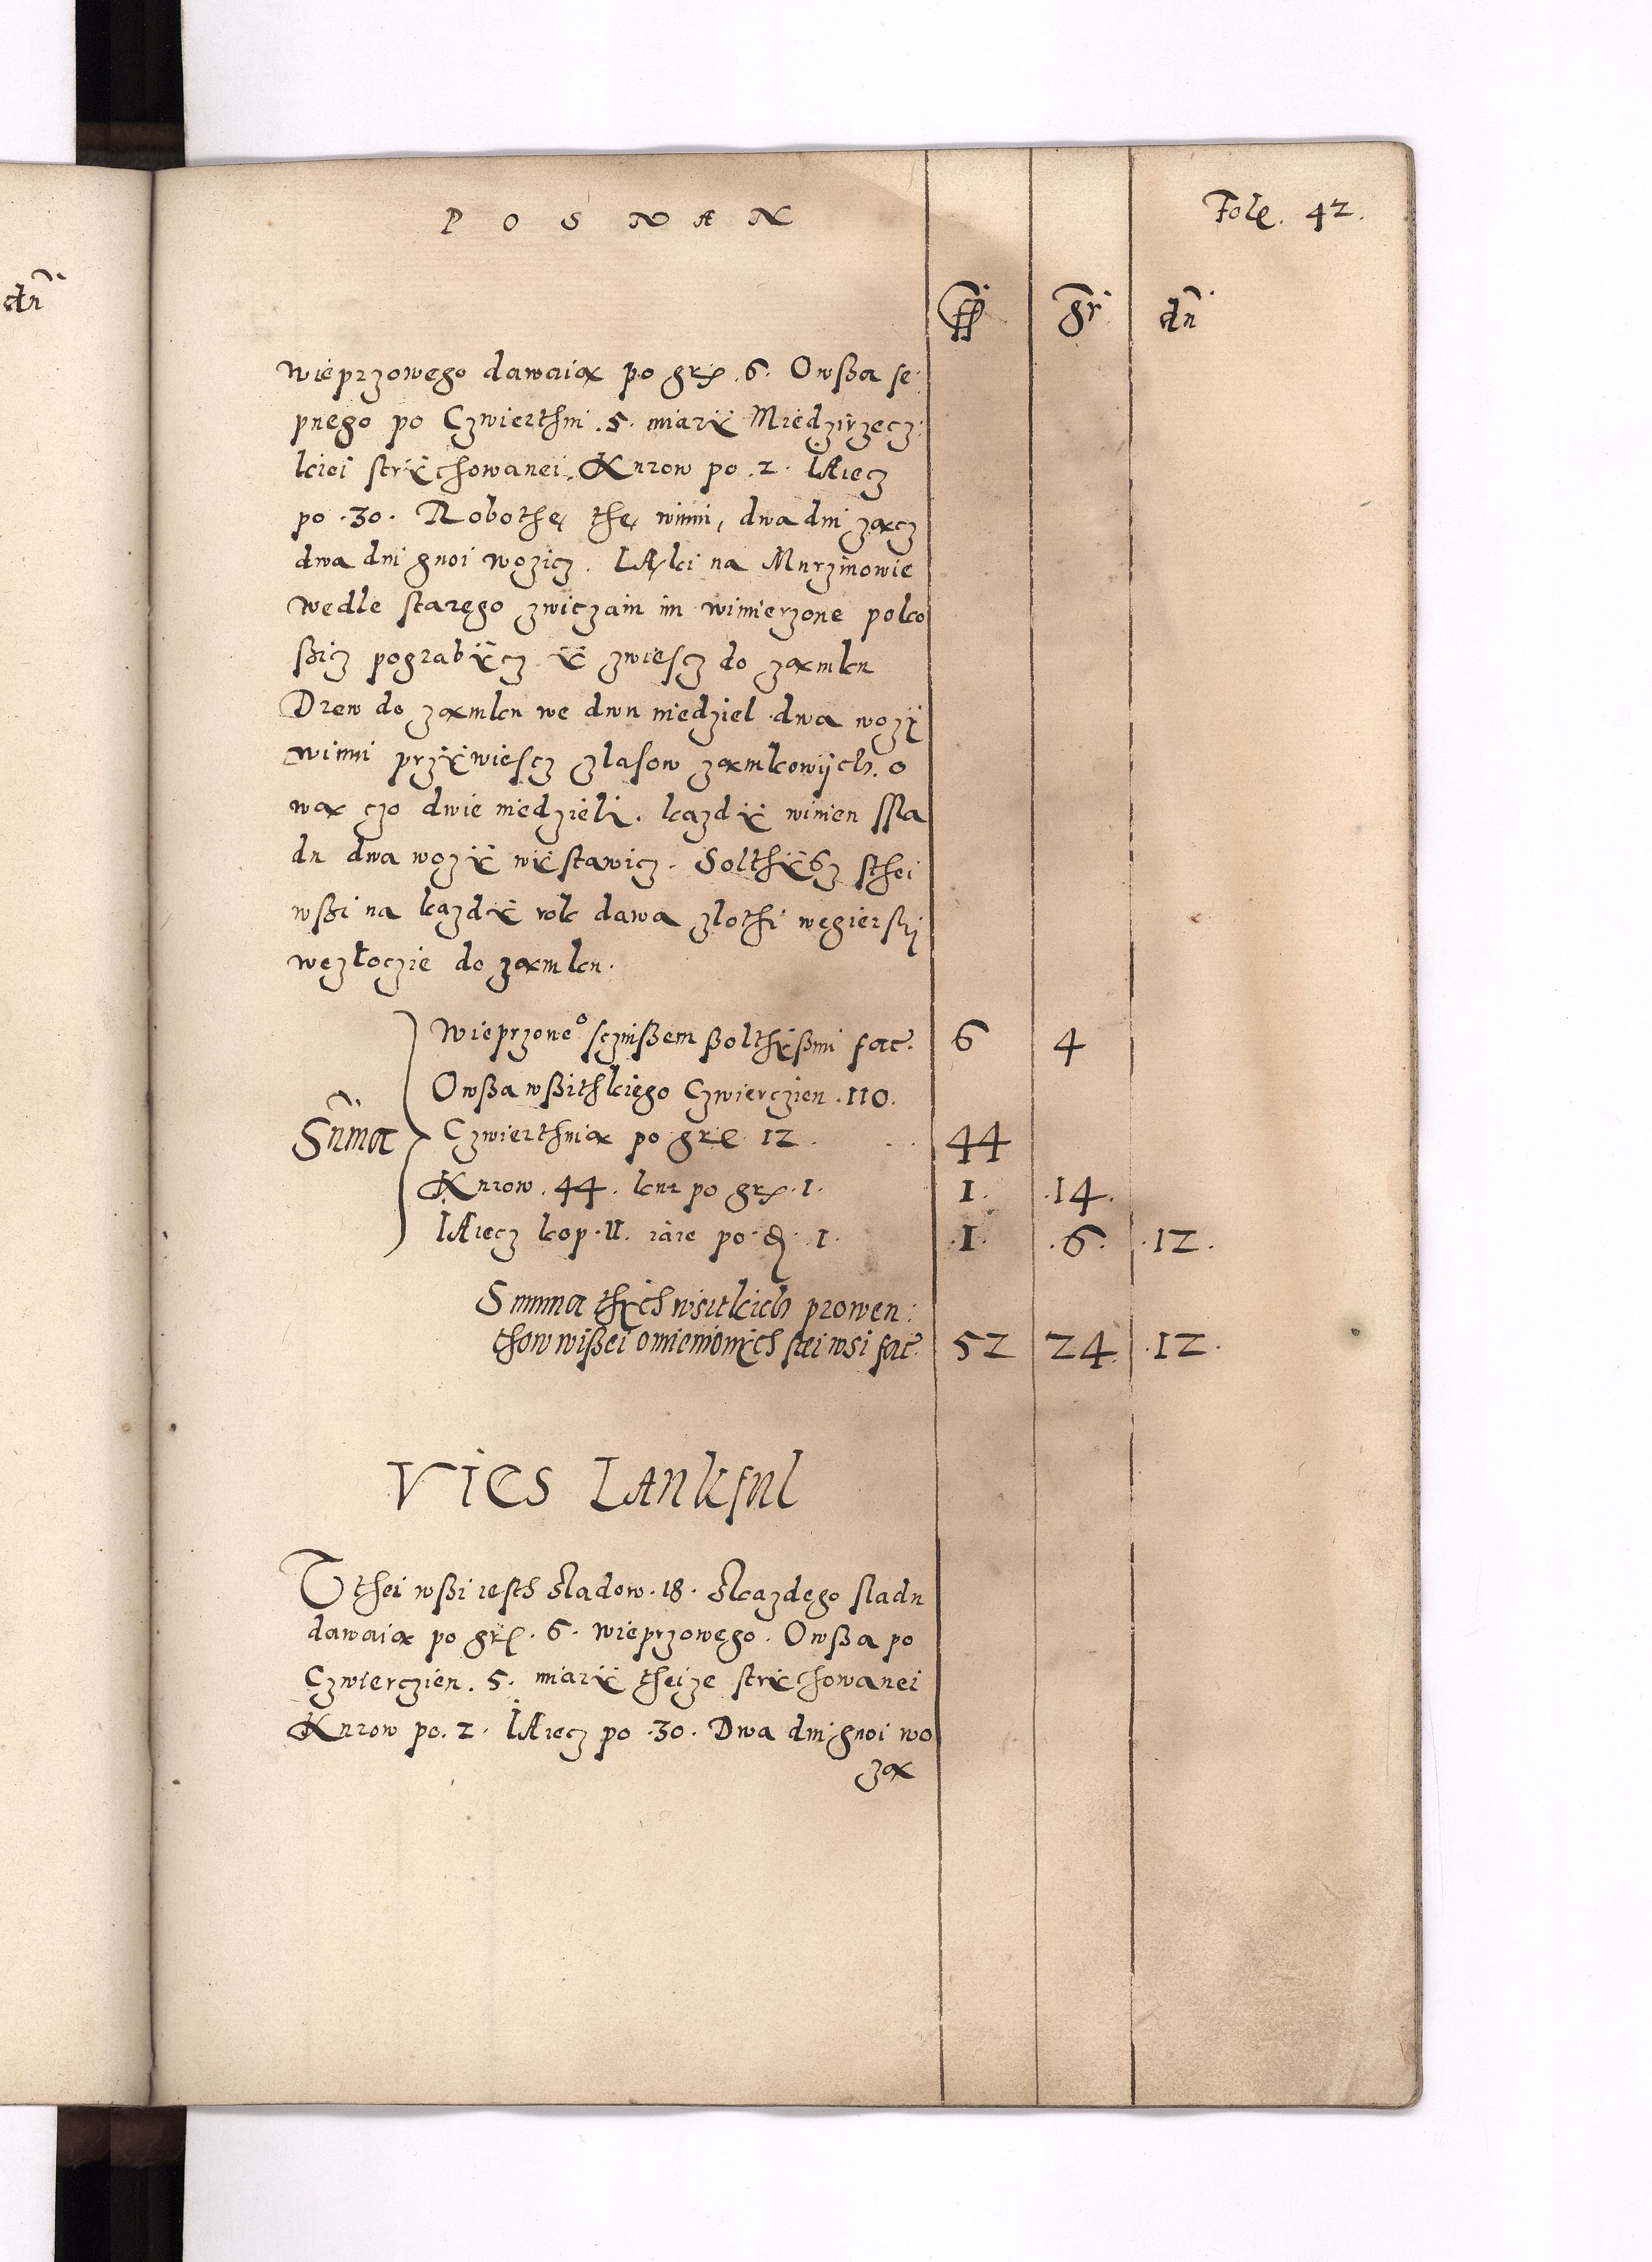 POSNAN
Fole. 42.
dn
ff gr dn
wieprzowego dawaią po gr. 6. Owßa se:
pnego po Czwierthni .5. miarÿ Miedzirzecz:
kiei strÿchowanei. Kurow po .2. IAiecz
po .30. Robothę thę winni, dwa dni żącz
dwa dni gnoi wozicz. LĄki na Murzinowie
wedle starego zwiczaiu im wimierzone poko
ßicz pograbÿcz ÿ zwiescz do ząmku
Drew do ząmku we dwu niedziel dwa wozÿ
winni przÿwiescz zlasow ząmkowijch. o
wą czo dwie niedzielÿ. kazdÿ winien ssla
du dwa wozÿ wÿstawicz. Solthÿßz sthei
wßi na kazdÿ rok dawa zlothi węgierski
wezłoczie do ząmku.
Wieprzoneº sczinßem ßolthÿßmi fac. 6 4
Owßa wßithkiego Czwierczien .110.
Suma Czwierthnią po gr. 12. 44
Kurow .44. kur po gr. 1. 1. .14.
IAiecz kop .11. iaie po d. .1. .1. .6. .12.
Summa thÿch wsitkich prowen:
thow wißei omienionÿch stei wsi fac. 52 24 .12.
VIES LANkſul
T thei wßi iesth sladow .18. Skazdego sladu
dawaią po gr. 6. wieprzowego. Owßa po
Czwierczien .5. miarÿ theize strÿchowanei
Kurow po .2. IAiecz po .30. Dwa dni gnoi wo
żą